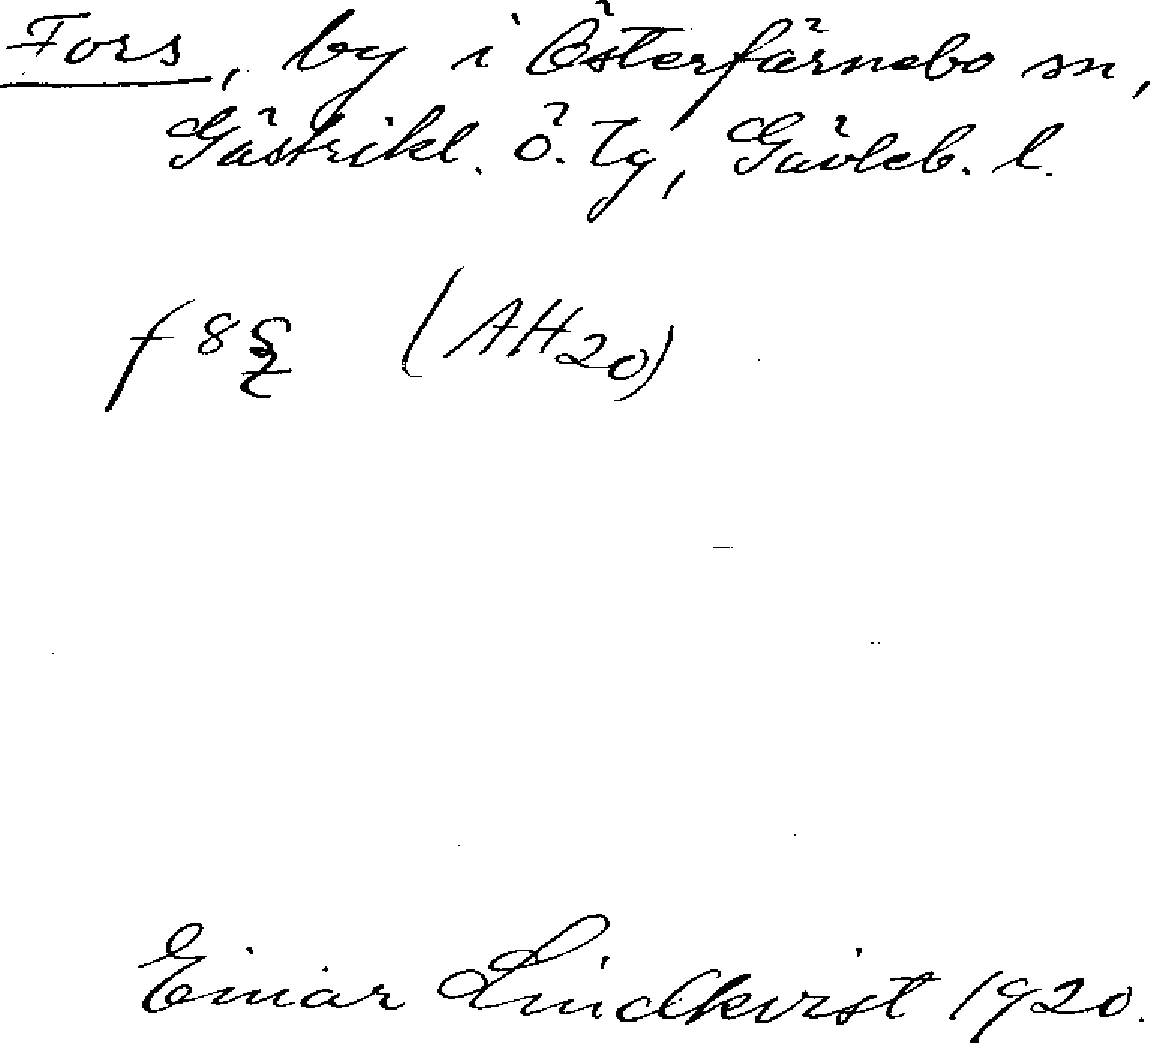 Fors, by i Österfärnebo sn,
Gästrikl. ö. tg, Gävleb. l.
(AH20)
Einar Lindkvist 1920.